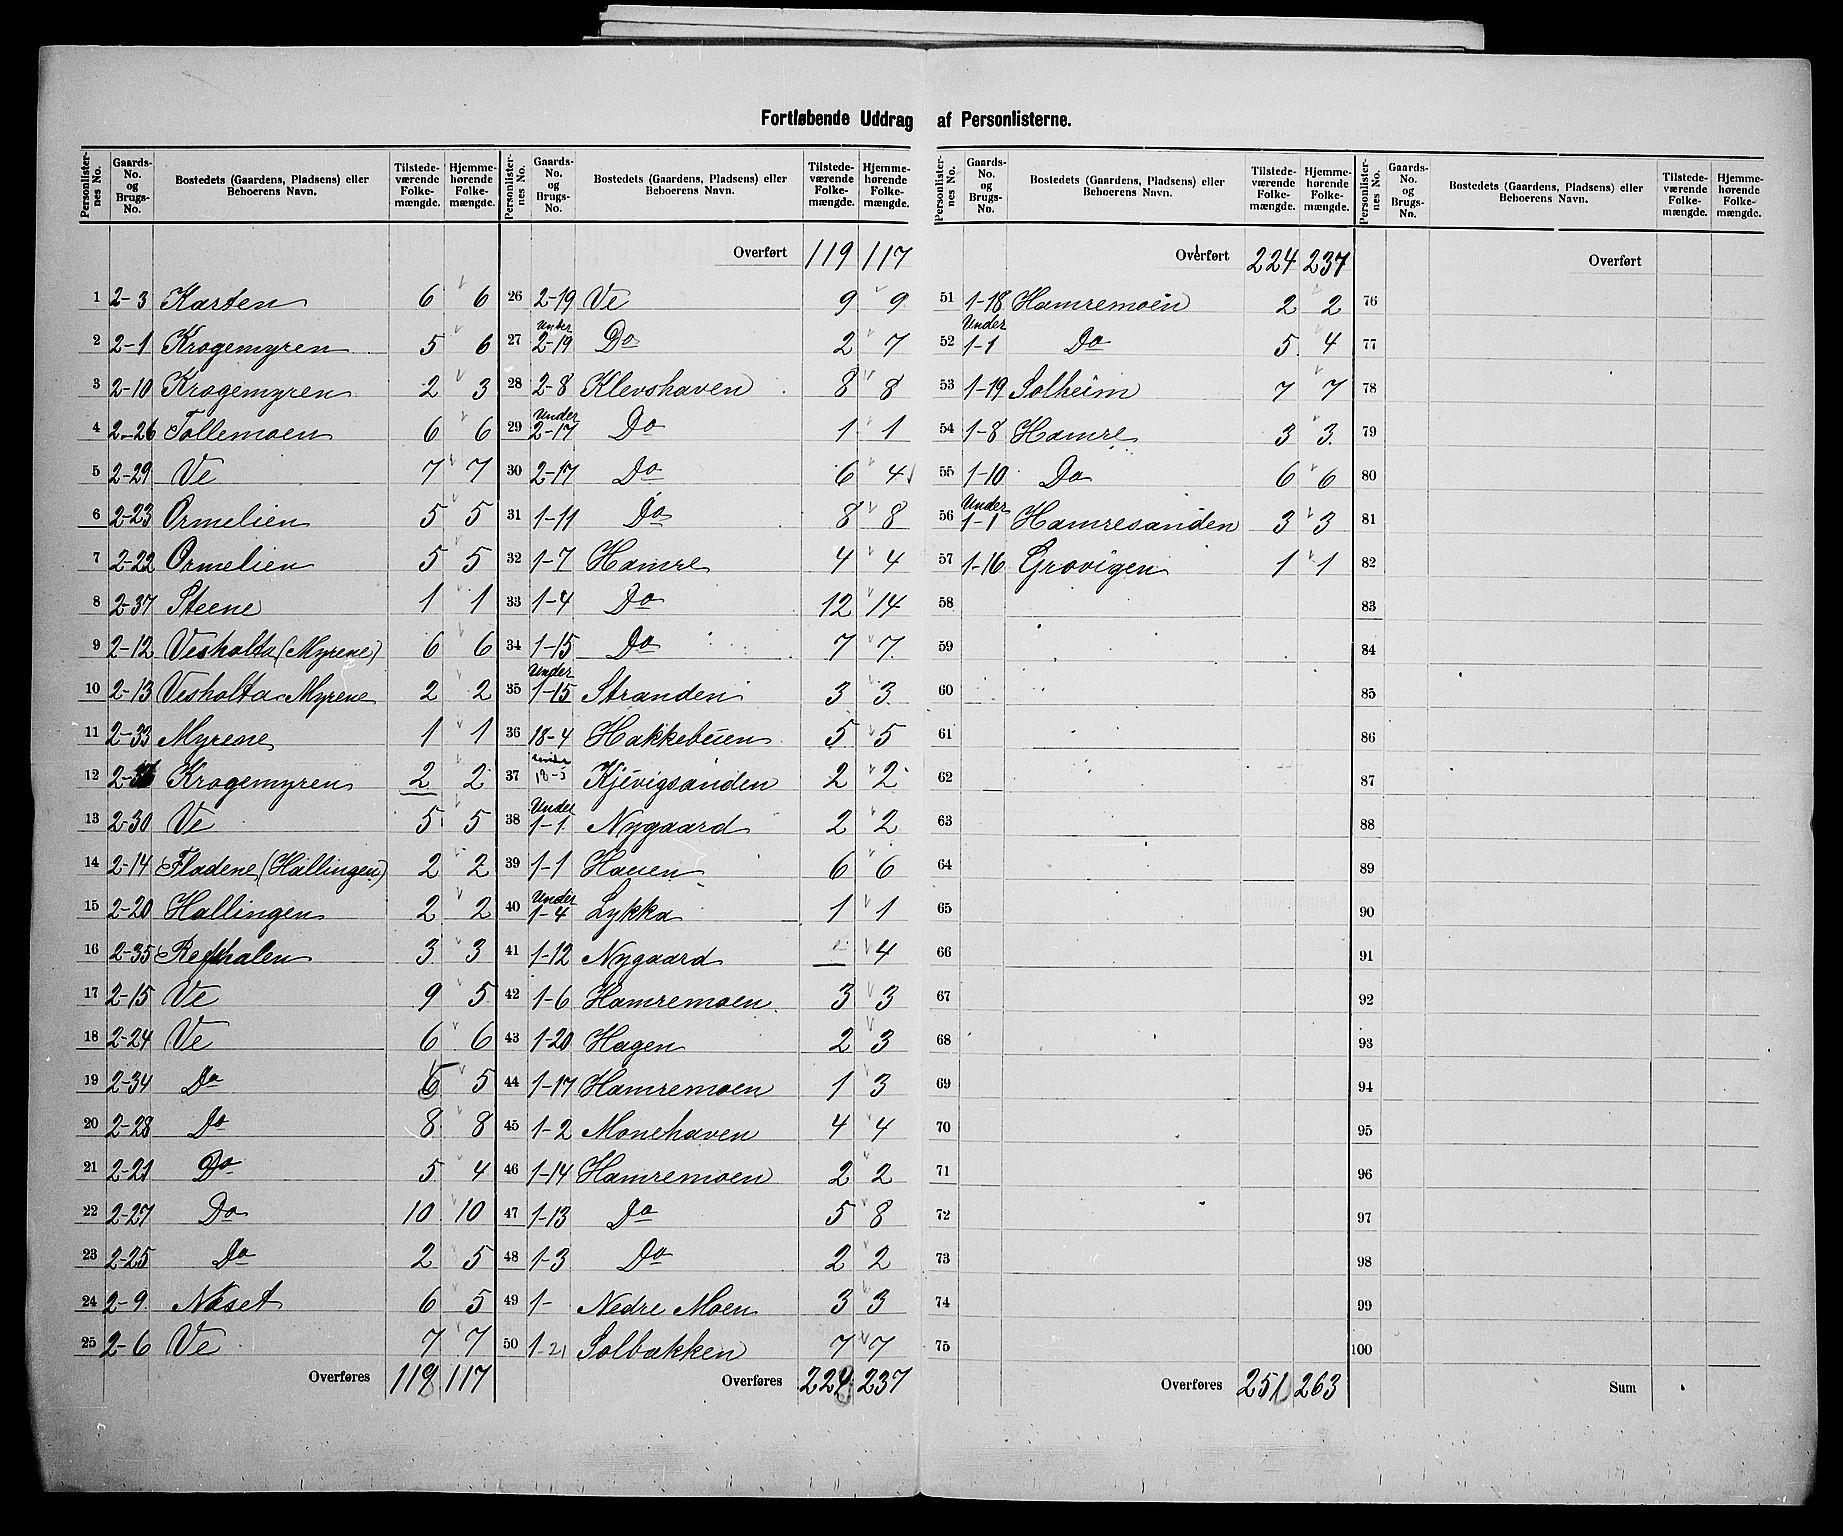 Fortløbende Uddrag af Personlisterne.
Personlisternes No. Gaards-No. og Brugs-No. Bostedets (Gaardens, Pladsens) eller Beboerens Navn. Tilstedeværende Folkemængde. Hjemmehørende Folkemængde.
1 2-3 Karten 6 6
2 2-1 Krogemyren 5 6
3 2-10 Krogemyren 2 3
4 2-26 Tollemoen 6 6
5 2-29 Ve 7 7
6 2-23 Ormelien 5 5
7 2-22 Ormelien 5 5
8 2-37 Steene 1 1
9 2-12 Vesholta (Myrene) 6 6
10 2-13 Vesholta Myrene 2 2
11 2-33 Myrene 1 1
12 Krogemyren 2 2
13 2-30 Ve 5 5
14 2-14 Fladene (Hallingen) 2 2
15 2-20 Hallingen 2 2
16 2-35 3 3
17 2-15 Ve 9 5
18 2-24 Ve 6 6
19 2-34 Do 6 5
20 2-28 Do 8 8
21 2-21 Do 5 4
22 2-27 Do 10 10
23 2-25 Do 2 5
24 2-9 Næset 6 5
25 2-6 Ve 7 7
Overføres 119 117
Personlisternes No. Gaards-No. og Brugs-No. Bostedets (Gaardens, Pladsens) eller Beboerens Navn. Tilstedeværende Folkemængde. Hjemmehørende Folkemængde.
Overført 119 117
26 2-19 Ve 9 9
27 Under 2-19 Do 2 7
28 2-8 Klevshaven 8 8
29 Under 2-17 Do 1 1
30 2-17 Do 6 4
31 1-11 Do 8 8
32 1-7 Hamre 4 4
33 1-4 Do 12 14
34 1-15 Do 7 7
35 Under 1-15 Stranden 3 3
36 18-4 Hakkebuen 5 5
37 Under Kjevigsanden 2 2
38 Under 1-1 Nygaard 2 2
39 1-1 Hauen 6 6
40 Under 1-4 Lykka 1 1
41 1-12 Nygaard — 4
42 1-6 Hamremoen 3 3
43 1-20 Hagen 2 3
44 1-17 Hamremoen 1 3
45 1-2 Monehaven 4 4
46 1-14 Hamremoen 2 2
47 1-13 Do 5 8
48 1-3 Do 2 2
49 1- Nedre Moen 3 3
50 1-21 Solbakken 7 7
Overføres 224 237
Personlisternes No. Gaards-No. og Brugs-No. Bostedets (Gaardens, Pladsens) eller Beboerens Navn. Tilstedeværende Folkemængde. Hjemmehørende Folkemængde.
Overført 224 237
51 1-18 Hamremoen 2 2
52 Under 1-1 Do 5 4
53 1-19 Solheim 7 7
54 1-8 Hamre 3 3
55 1-10 Do 6 6
56 Under 1-1 Hamresanden 3 3
57 1-16 Grovigen 1 1
58
59
60
61
62
63
64
65
66
67
68
69
70
71
72
73
74
75
Overføres 251 263
Personlisternes No. Gaards-No. og Brugs-No. Bostedets (Gaardens, Pladsens) eller Beboerens Navn. Tilstedeværende Folkemængde. Hjemmehørende Folkemængde.
Overført
76
77
78
79
80
81
82
83
84
85
86
87
88
89
90
91
92
93
94
95
96
97
98
99
100
Sum